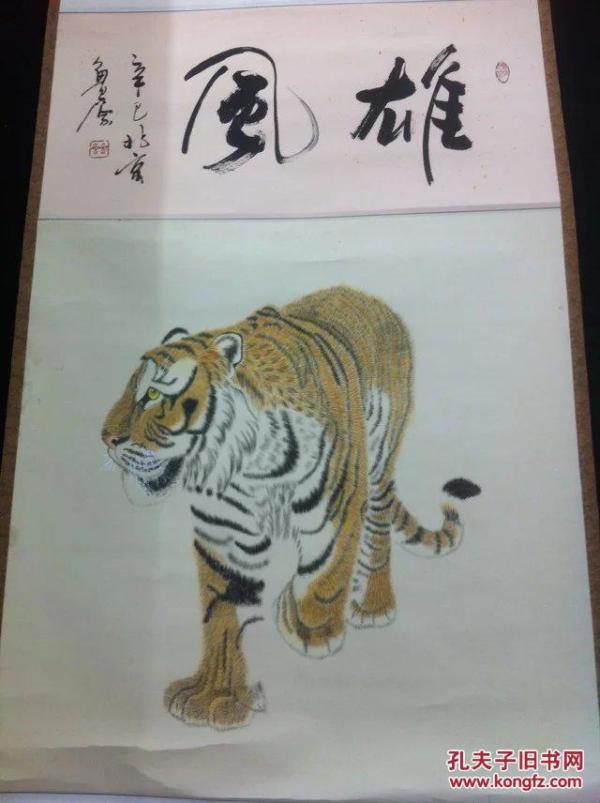 雄風
辛巳
孔夫子旧书网
www.kongfz.com